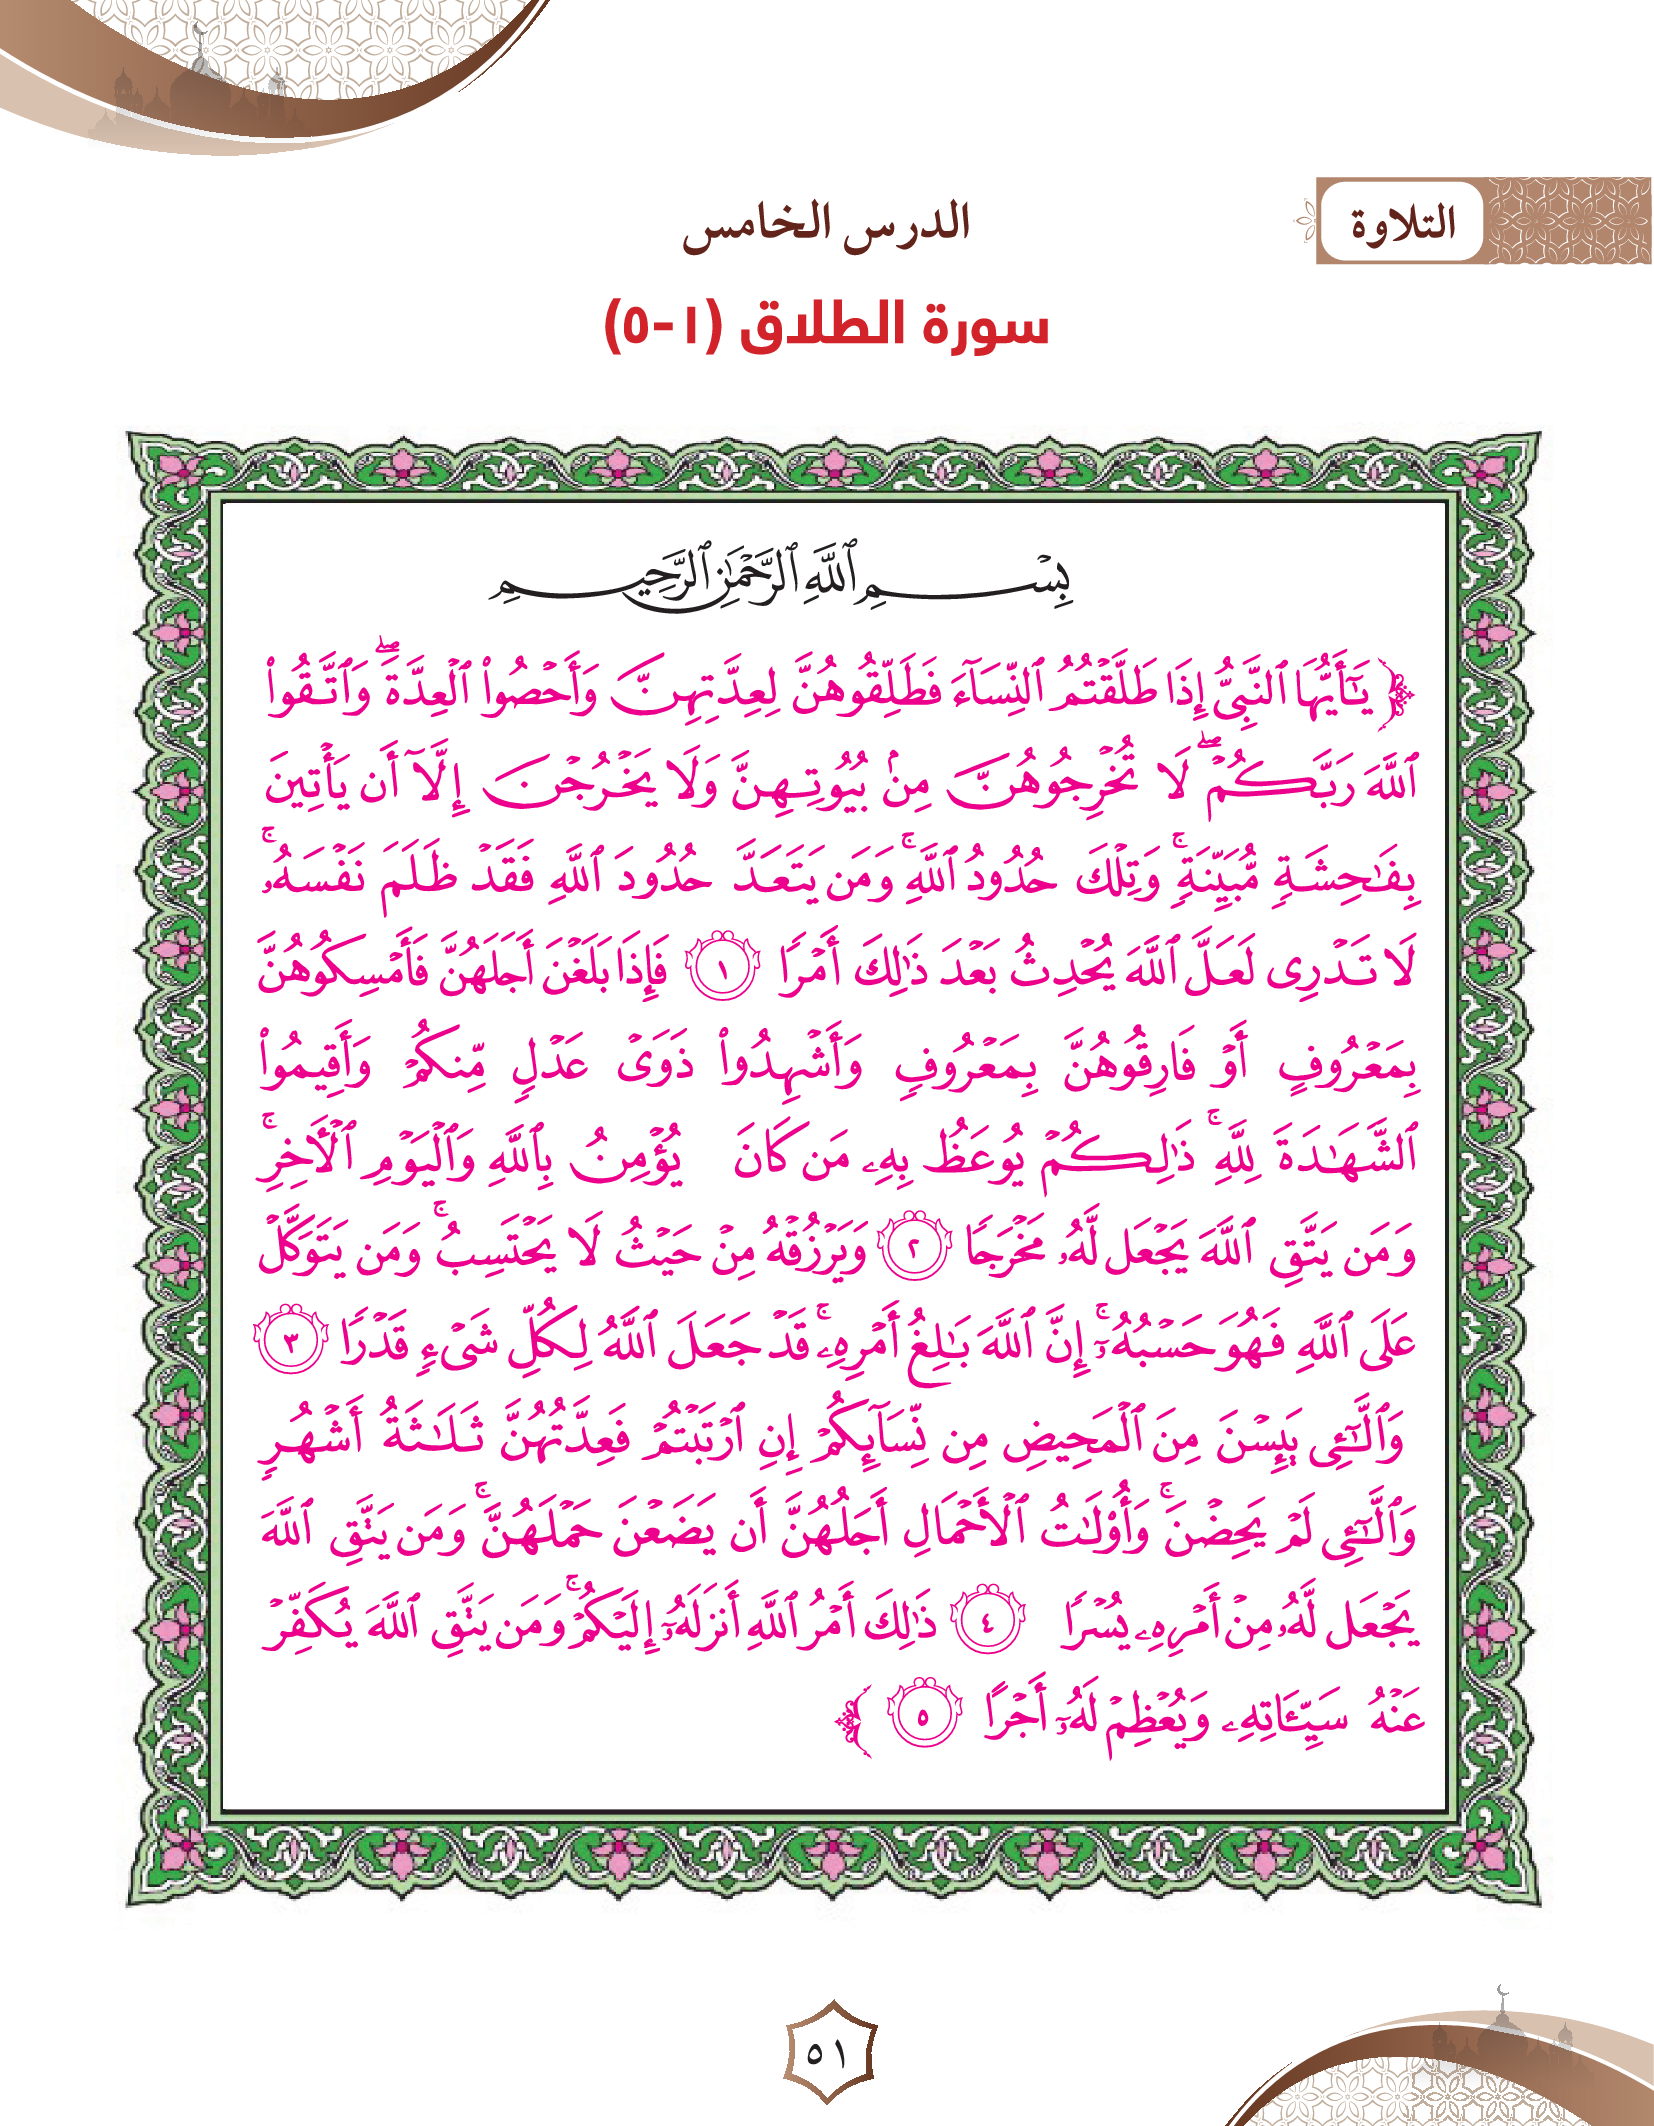 التلاوة
الدرس الخامس
سورة الطلاق (١-٥)
بِسْمِ ٱللَّهِ ٱلرَّحْمَٰنِ ٱلرَّحِيمِ
﴿ يَٰٓأَيُّهَا ٱلنَّبِىُّ إِذَا طَلَّقْتُمُ ٱلنِّسَآءَ فَطَلِّقُوهُنَّ لِعِدَّتِهِنَّ وَأَحْصُوا۟ ٱلْعِدَّةَ ۖ وَٱتَّقُوا۟
ٱللَّهَ رَبَّكُمْ ۖ لَا تُخْرِجُوهُنَّ مِنۢ بُيُوتِهِنَّ وَلَا يَخْرُجْنَ إِلَّآ أَن يَأْتِينَ
بِفَٰحِشَةٍ مُّبَيِّنَةٍ ۚ وَتِلْكَ حُدُودُ ٱللَّهِ ۚ وَمَن يَتَعَدَّ حُدُودَ ٱللَّهِ فَقَدْ ظَلَمَ نَفْسَهُۥ ۚ
لَا تَدْرِى لَعَلَّ ٱللَّهَ يُحْدِثُ بَعْدَ ذَٰلِكَ أَمْرًا ١ فَإِذَا بَلَغْنَ أَجَلَهُنَّ فَأَمْسِكُوهُنَّ
بِمَعْرُوفٍ أَوْ فَارِقُوهُنَّ بِمَعْرُوفٍ وَأَشْهِدُوا۟ ذَوَىْ عَدْلٍ مِّنكُمْ وَأَقِيمُوا۟
ٱلشَّهَٰدَةَ لِلَّهِ ۚ ذَٰلِكُمْ يُوعَظُ بِهِۦ مَن كَانَ يُؤْمِنُ بِٱللَّهِ وَٱلْيَوْمِ ٱلْءَاخِرِ ۚ
وَمَن يَتَّقِ ٱللَّهَ يَجْعَل لَّهُۥ مَخْرَجًا ٢ وَيَرْزُقْهُ مِنْ حَيْثُ لَا يَحْتَسِبُ ۚ وَمَن يَتَوَكَّلْ
عَلَى ٱللَّهِ فَهُوَ حَسْبُهُۥٓ ۚ إِنَّ ٱللَّهَ بَٰلِغُ أَمْرِهِۦ ۚ قَدْ جَعَلَ ٱللَّهُ لِكُلِّ شَىْءٍ قَدْرًا ٣
وَٱلَّٰٓـِٔى يَئِسْنَ مِنَ ٱلْمَحِيضِ مِن نِّسَآئِكُمْ إِنِ ٱرْتَبْتُمْ فَعِدَّتُهُنَّ ثَلَٰثَةُ أَشْهُرٍ
وَٱلَّٰٓـِٔى لَمْ يَحِضْنَ ۚ وَأُو۟لَٰتُ ٱلْأَحْمَالِ أَجَلُهُنَّ أَن يَضَعْنَ حَمْلَهُنَّ ۚ وَمَن يَتَّقِ ٱللَّهَ
يَجْعَل لَّهُۥ مِنْ أَمْرِهِۦ يُسْرًا ٤ ذَٰلِكَ أَمْرُ ٱللَّهِ أَنزَلَهُۥٓ إِلَيْكُمْ ۚ وَمَن يَتَّقِ ٱللَّهَ يُكَفِّرْ
عَنْهُ سَيِّـَٔاتِهِۦ وَيُعْظِمْ لَهُۥٓ أَجْرًا ٥ ﴾
٥١